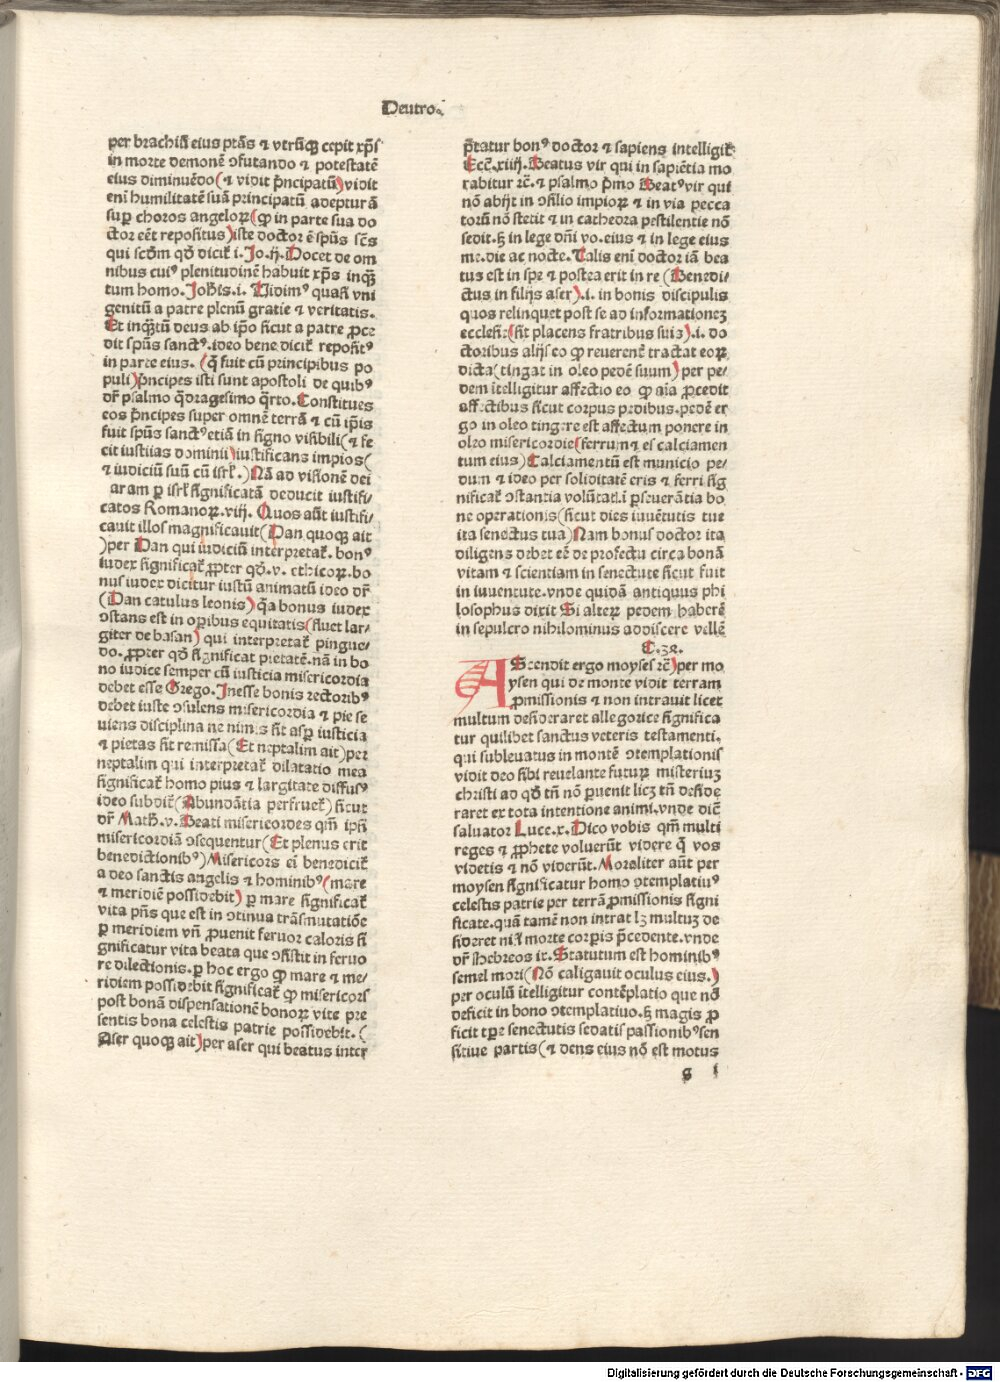 Deutro.
per brachiū eius ptās ⁊ vtrūqꝫ cepit xp̄s
in morte demonē ↄfutando ⁊ potestatē
eius diminuēdo (⁊ vidit p̄ncipatū) vidit
eni humilitatē suā principatū adepturā
suꝑ choros angeloꝝ (ꝙ in parte sua do
ctor eēt repositus) iste doctor ē sp̄us sc̄s
qui scdm qd̄ dicit᷑ i. Jo. ij. Docet de om
nibus cuiꝰ plenitudinē habuit xp̄s inqꝫ
tum homo. Joh̄is. i. Vidimꝰ quasi vni
genitū a patre plenū gratie ⁊ veritatis.
Et inqꝫtū deus ab ip̄o sicut a patre ꝓce
dit sp̄us sanctꝰ. ideo bene dicit᷑ repositꝰ
in parte eius. (q̄ fuit cū principibus po
puli) p̄ncipes isti sunt apostoli de quibꝰ
dr̄ psalmo q̄dragesimo q̄rto. Constitues
eos p̄ncipes super omnē terrā ⁊ cū ip̄is
fuit sp̄us sanctꝰ etiā in signo visibili (⁊ fe
cit iustiias dominii) iustificans impios (
⁊ iudiciū suū cū isrl̄.) Nā ad visionē dei
aram ꝑ isrl̄ significatā deducit iustifi⸗
catos Romanoꝝ. viij. Quos aūt iustifi⸗
cauit illos magnificauit (Dan quoqꝫ ait
) per Dan qui iudiciū interpretat᷑. bonꝰ
iudex significat᷑ ꝓpter qd̄. v. ethicoꝝ. bo
nus iudex dicitur iustū animatū ideo dr̄
(Dan catulus leonis) q̄a bonus iudex
ↄstans est in oꝑibus equitatis (fluet lar⸗
giter de basan) qui interpretat᷑ pingue⸗
do. ꝓpter qd̄ significat pietatē. nā in bo
no iudice semper cū iusticia misericordia
debet esse Grego. Jnesse bonis rectoribꝰ
debet iuste ↄsulens misericordia ⁊ pie se
uiens disciplina ne nimis sit aspꝑ iusticia
⁊ pietas sit remissa (Et neptalim ait) per
neptalim qui interpretat᷑ dilatatio mea
significat᷑ homo pius ⁊ largitate diffusꝰ
ideo subdit᷑ (Abundātia perfruet᷑) sicut
dr̄ Math̄. v. Beati misericordes qm̄ ip̄i
misericordiā ↄsequentur (Et plenus erit
benedictionibꝰ) Misericors ei benedicit᷑
a deo sanctis angelis ⁊ hominibꝰ (mare
⁊ meridiē possidebit) ꝑ mare significat᷑
vita pn̄s que est in ↄtinua trāsmutatiōe
ꝑ meridiem vn̄ ꝓuenit feruor caloris si
gnificatur vita beata que ↄsistit in feruo
re dilectionis. ꝑ hoc ergo ꝙ mare ⁊ me⸗
ridiem possidebit significat᷑ ꝙ misericors
post bonā dispensationē bonoꝝ vite pre
sentis bona celestis patrie possidebit. (
Aser quoqꝫ ait) per aser qui beatus inter
p̄tatur bonꝰ doctor ⁊ sapiens intelligit᷑
Ecc̄. xiiij. Beatus vir qui in sapiētia mo
rabitur rc̄. ⁊ psalmo p̄mo Beatꝰ vir qui
nō abijt in ↄsilio impioꝝ ⁊ in via pecca
torū nō stetit ⁊ in cathedra pestilentie nō
sedit. ꝫ in lege dn̄i vo. eius ⁊ in lege eius
me. die ac nocte. Talis eni doctor iā bea
tus est in spe ⁊ postea erit in re (Benedi⸗
ctus in filijs aser). i. in bonis discipulis
quos relinquet post se ad informationeꝫ
ecclesie (sit placens fratribus suis). i. do
ctoribus alijs eo ꝙ reuerent᷑ tractat eoꝝ
dicta (tingat in oleo pedē suum) per pe⸗
dem ītelligitur affectio eo ꝙ aīa ꝓcedit
affectibus sicut corpus pedibus. pedē er
go in oleo tingere est affectum ponere in
oleo misericordie (ferrum ⁊ es calciamen
tum eius) Calciamentū est municio pe⸗
dum ⁊ ideo per soliditatē eris ⁊ ferri sig
nificat᷑ ↄstantia volūtat. i ꝑseuerātia bo
ne operationis (sicut dies iuuētutis tue
ita senectus tua) Nam bonus doctor ita
diligens debet eē de profectu circa bonā
vitam ⁊ scientiam in senectute sicut fuit
in iuuentute. vnde quidā antiquus phi
losophus dixit Si alteꝝ pedem haberē
in sepulcro nihilominus addiscere vellē
C. 32.
AScendit ergo moyses rc̄) per mo
ysen qui de monte vidit terram
ꝓmissionis ⁊ non intrauit licet
multum desideraret allegorice significa
tur quilibet sanctus veteris testamenti.
qui subleuatus in montē ↄtemplationis
vidit deo sibi reuelante futuꝝ misteriuꝫ
christi ad qd̄ tn̄ nō ꝑuenit licꝫ tn̄ deside
raret ex tota intentione animi. vnde dic̄
saluator Luce. x. Dico vobis qm̄ multi
reges ⁊ ꝓphete voluerūt videre q̄ vos
videtis ⁊ nō viderūt. Moraliter aūt per
moysen significatur homo ↄtemplatiuꝰ
celestis patrie per terrā ꝓmissionis signi
ficate. quā tamē non intrat lꝫ multuꝫ de
sideret nisi morte corꝑis p̄cedente. vnde
dr̄ Hebreos ix. Statutum est hominibꝰ
semel mori (Nō caligauit oculus eius.)
per oculū ītelligitur contēplatio que nō
deficit in bono ↄtemplatiuo. ꝫ magis ꝓ
ficit tꝑe senectutis sedatis passionibꝰ sen
sitiue partis (⁊ dens eius nō est motus
g i
Digitalisierung gefördert durch die Deutsche Forschungsgemeinschaft - DFG